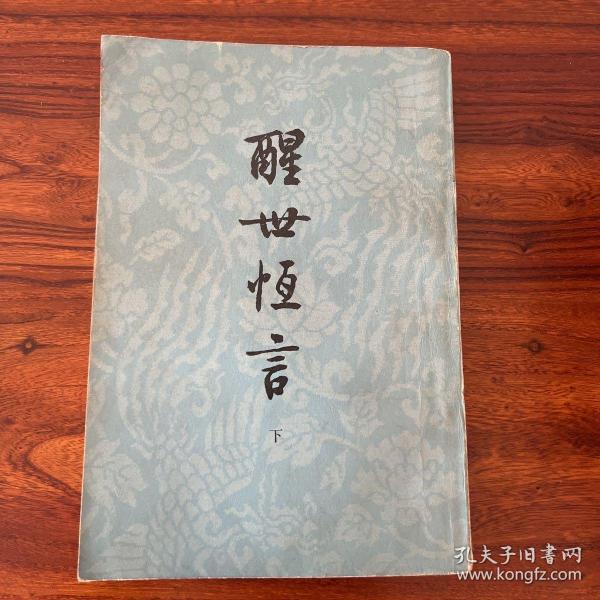 醒世恆言
下
孔夫子旧書网
www.kongfz.com